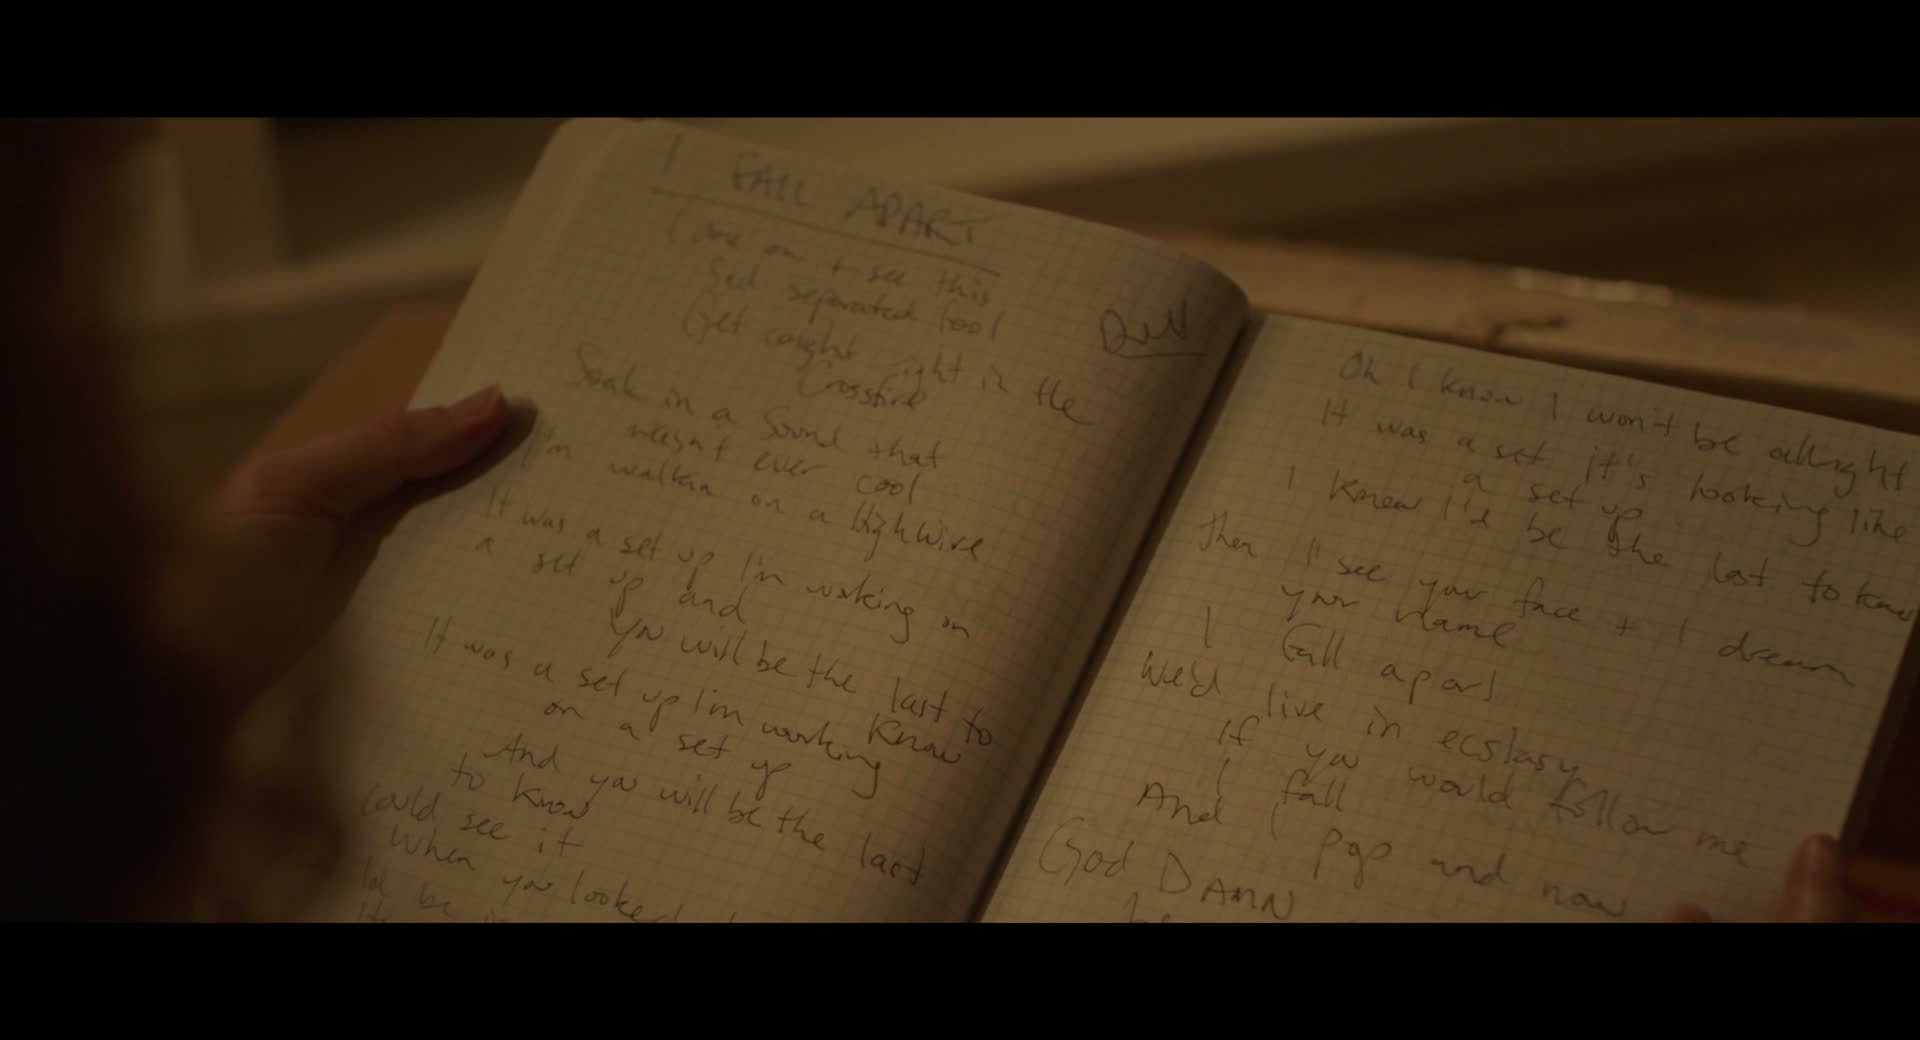 I FALL APART
I see this
Sad separated fool
Get caught right in the
Crossfire
Soak in a sound that
doesn't ever cool
I'm walkin on a High Wire
It was a set up I'm working on
a set up and
you will be the last to
know
It was a set up I'm working
on a set up
And you will be the last
to know
Could see it
when you looked
be
Oh I know I won't be allright
It was a set it's looking like
a set up
I knew I'd be the last to know
Then I see your face + I dream
your name
I fall apart
We'd live in ecstasy
If you would follow me
I fall
And I pop and now
God DAMN